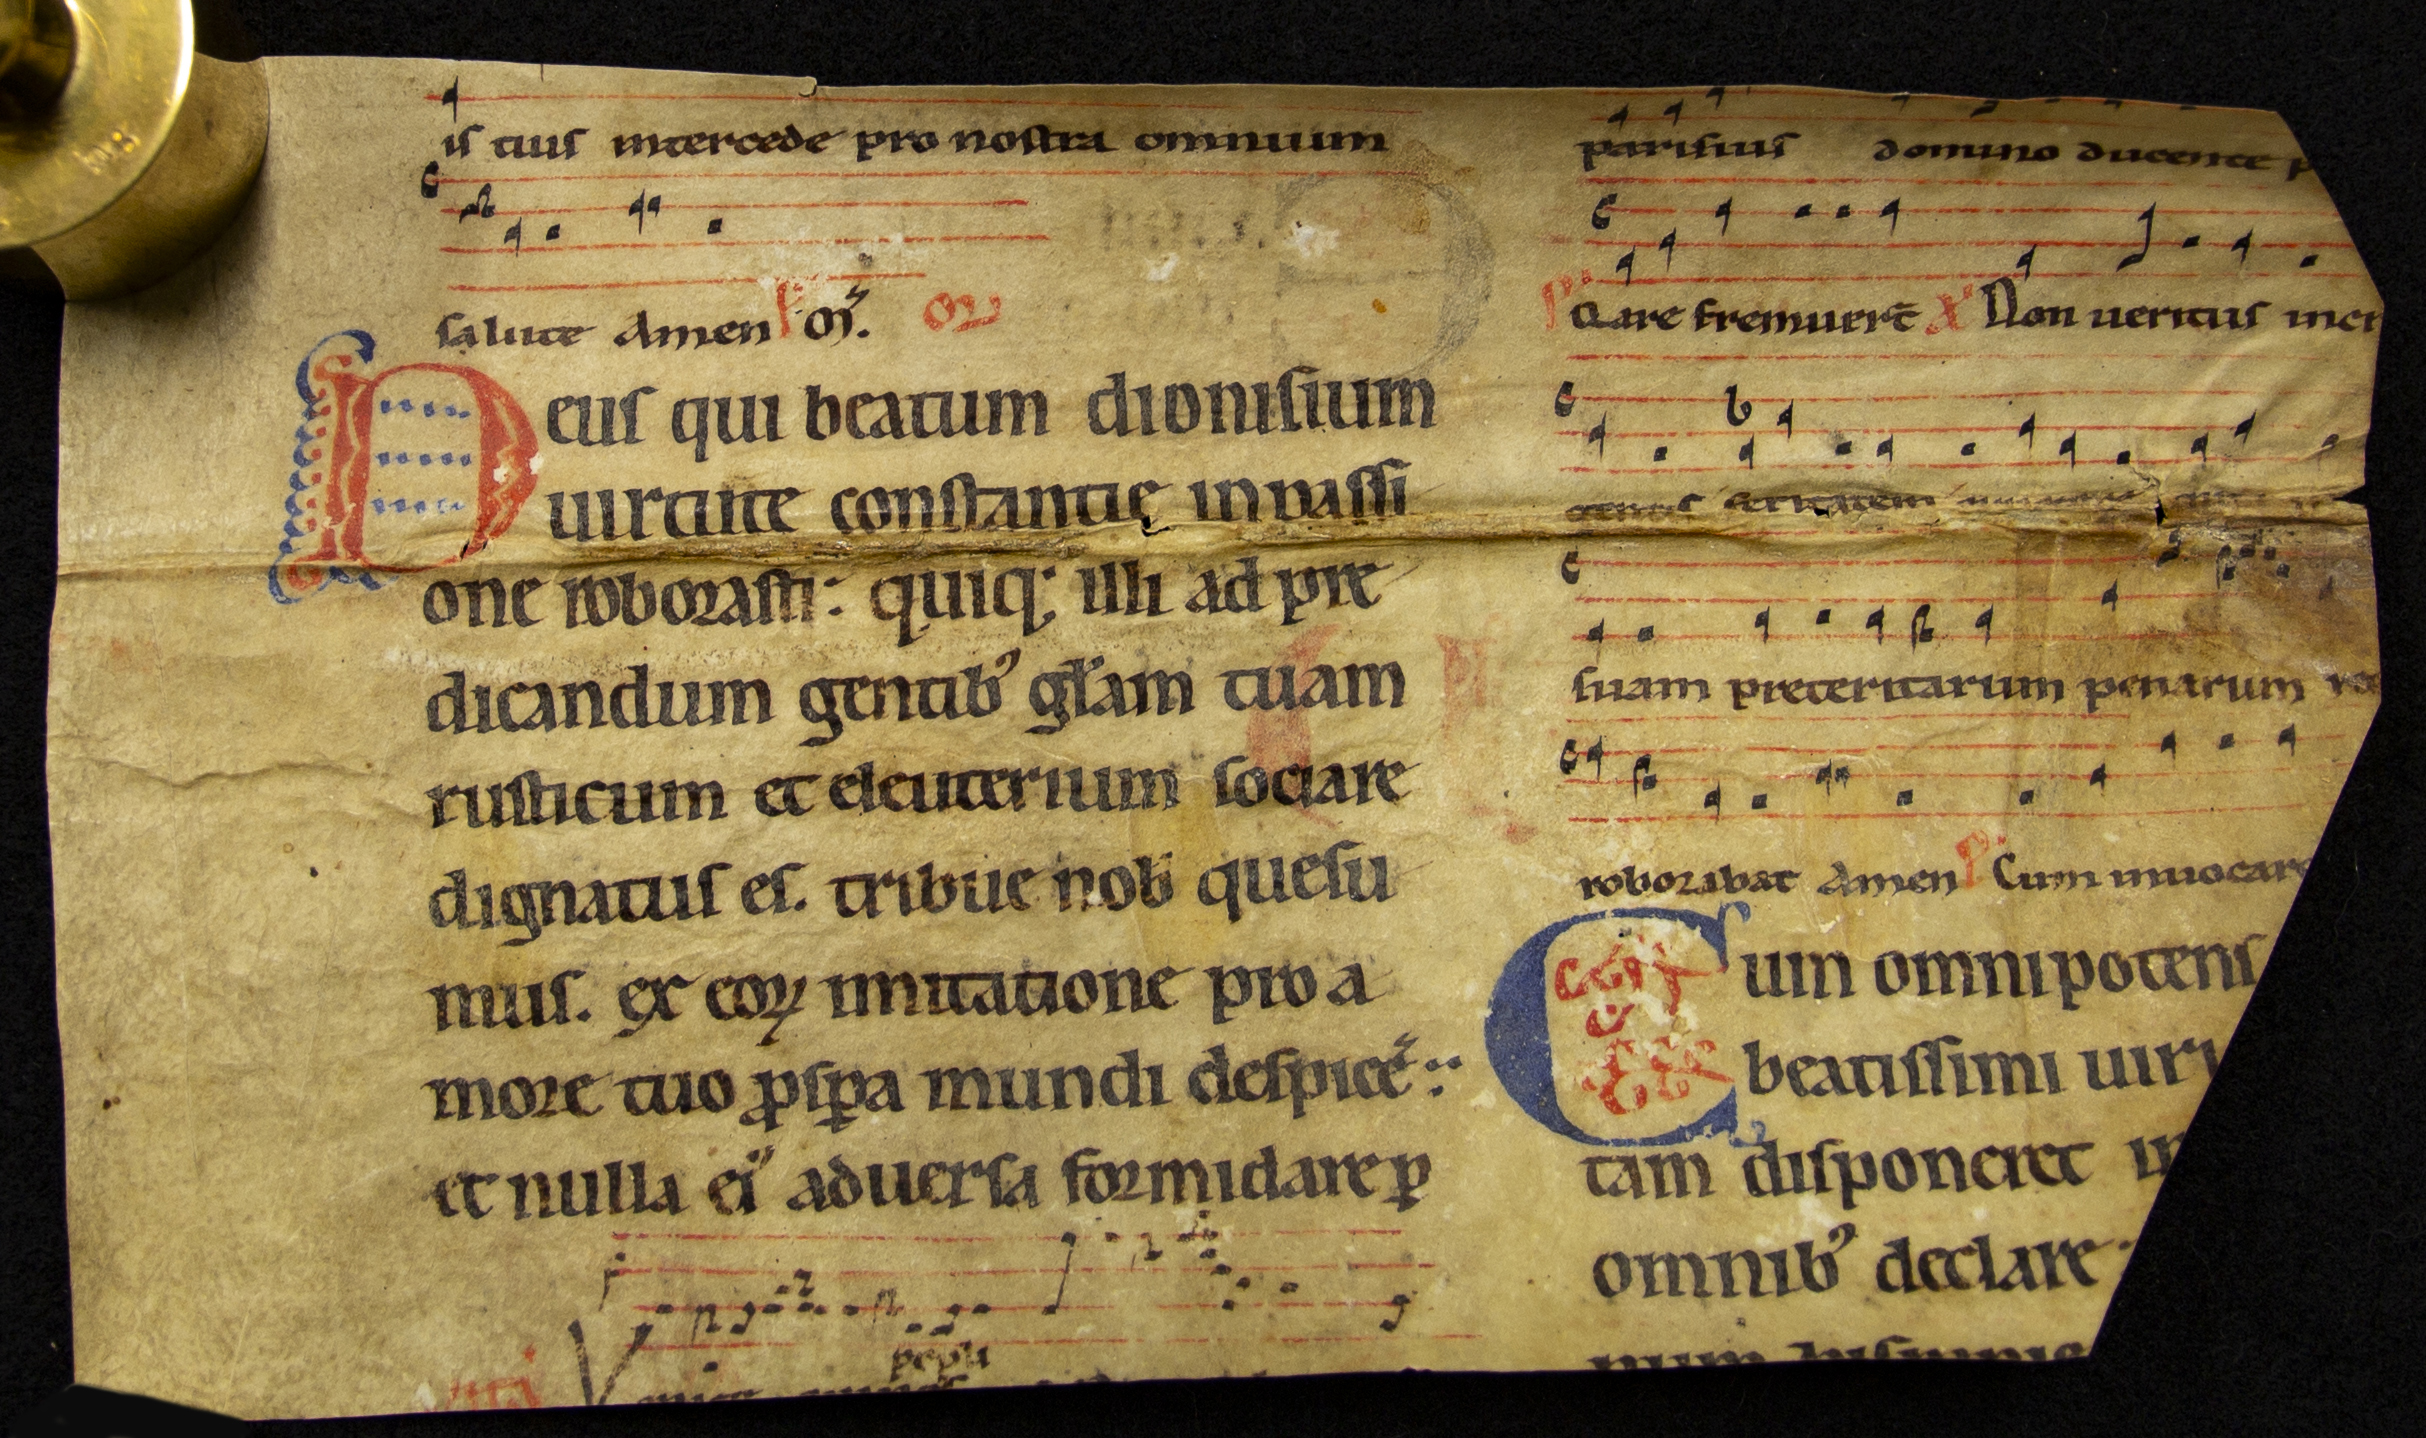 is tuis intercede pro nostra omnium
salute Amen Oꝛ
Deus qui beatum dionisium
uirtute constantię in passi
one roborasti: quiq; illi ad pre
dicandum gentib' gl̃am tuam
rusticum et eleuterium sociare
dignatus es. tribue nob̃ quesu
mus. ex eoꝝ imitatione pro a
more tuo ꝓspꝑa mundi despice
et nulla ei' aduersa formidare ꝑ
pepu
parisius domino ducente p
Quare fremuer̄t Non ueritus
ueritatem
suam preteritarum penarum
roborabat Amen Cum inuocare
Cum omnipotens
beatissimi uiri
tam disponeret in
omnib' declare